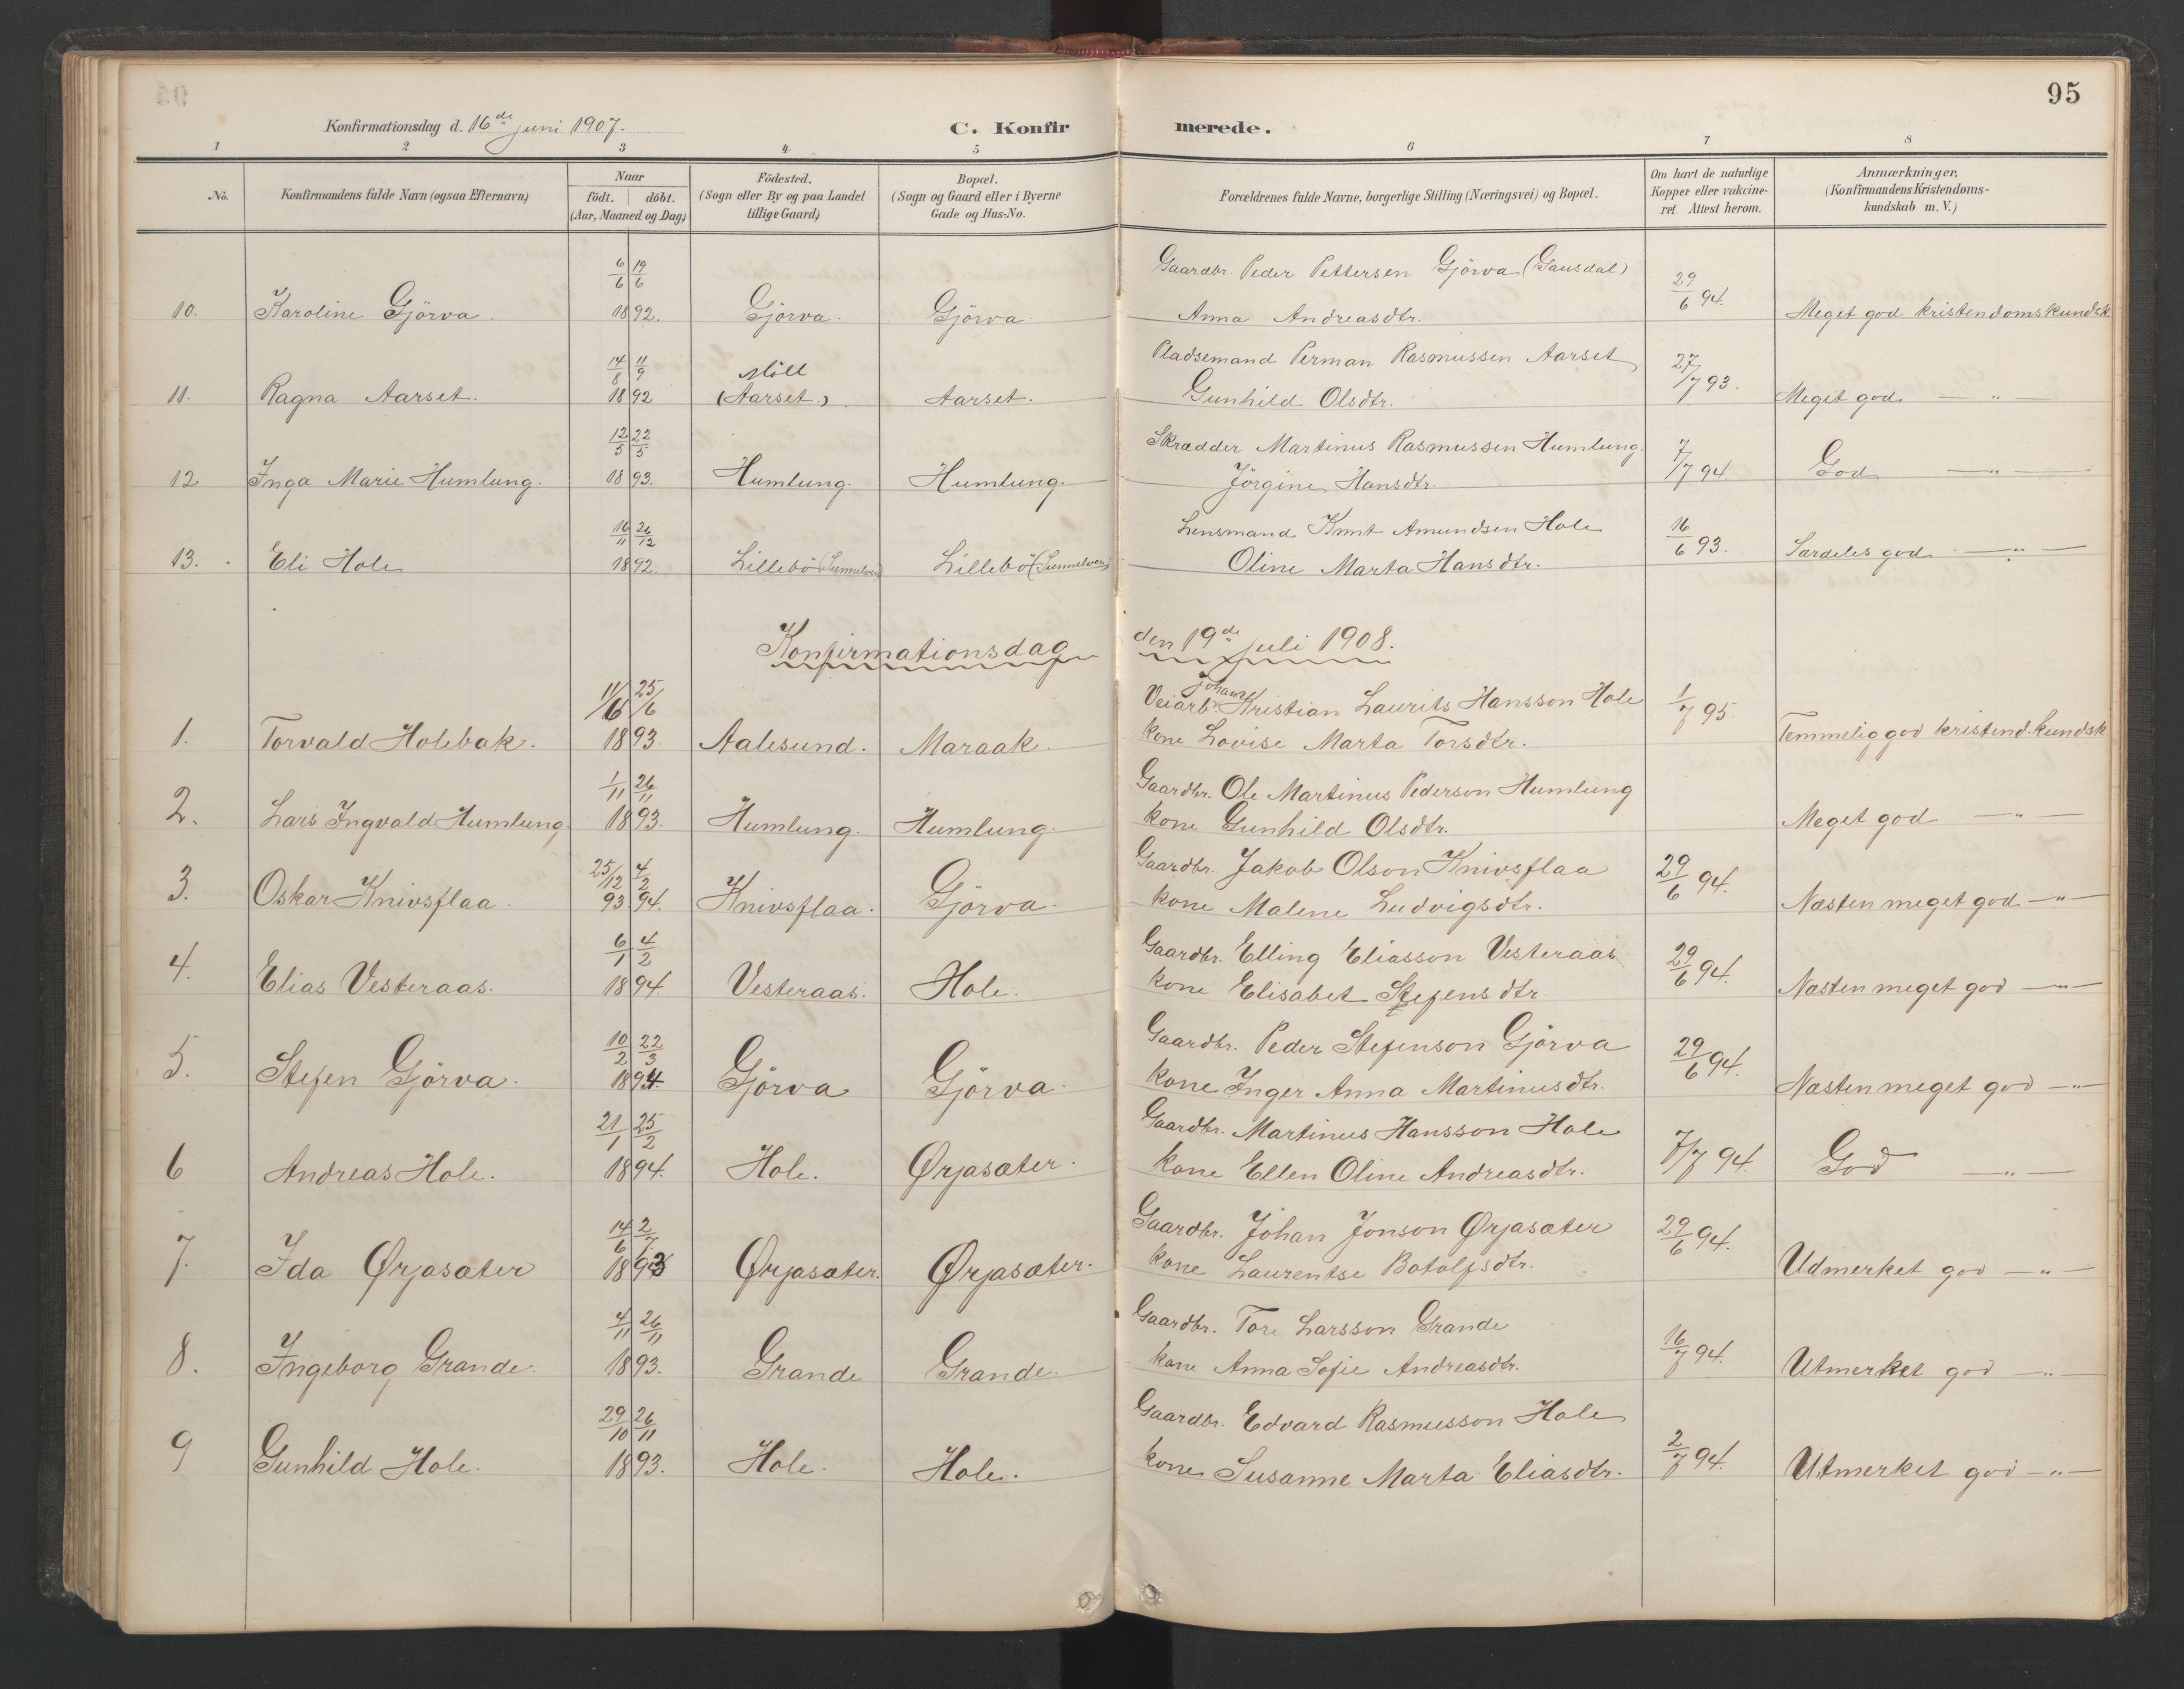 95
Konfirmationsdag d. 16de juni 1907. C. Konfirmerede.
1 2 3 4 5 6 7 8
No. Konfirmandens fulde Navn (ogsaa Efternavn) Naar født. døbt. (Aar, Maaned og Dag.) Födested. (Sogn eller By og paa Landet tillige Gaard) Bopæl. (Sogn og Gaard eller i Byerne Gade og Hus-No. Forældrenes fulde Navne, borgerlige Stilling (Næringsvei) og Bopæl. Om havt de naturlige Kopper eller vakcineret. Attest herom. Anmærkninger. (Konfirmandens Kristendomskundskab m. V.)
6/6 19/6 Gaardbr. Peder Pettersen Gjörva (Gausdal) 29/6 94.
10. Karoline Gjörva 1892. Gjörva. Gjörva Anna Andreasdtr. Meget god kristendomskundsk
14/8 11/9 Möll Pladsemand Perman Rasmussen Aarset 27/7 93.
11. Ragna Aarset. 1892 (Aarset.) Aarset. Gunhild Olsdtr. Meget god — " —
12/5 22/5 Skrædder Martinus Rasmussen Humlung. 7/7 94.
12 Inga Marie Humlung. 1893. Humlung. Humlung. Jörgine Hansdtr. God — " —
16/11 26/12 Lensmand Knut Amundsen Hole 16/6 93.
13. Eli Hole 1892. Lillebö (Sunnelven) Lillebö (Sunnelven) Oline Marta Hansdtr. Særdeles god — " —
Konfirmationsdag den 19de juli 1908.
11/6 25/6 Veiarb. Johane Kristian Laurits Hansson Hole 1/7 95.
1. Torvald Holebak. 1893. Aalesund. Maraak. kone Lovise Marta Torsdtr. Temmelig god kristend.kundsk
1/11 26/11 Gaardbr. Ole Martinus Pederson Humlung
2. Lars Ingvald Humlung. 1893. Humlung. Humlung. kone Gunhild Olsdtr. Meget god — " —
25/12 4/2 Gaardbr. Jakob Olson Knivsflaa 29/6 94.
3. Oskar Knivsflaa. 93. 94. Knivsflaa. Gjörva. kone Malene Ludvigsdtr. Næsten meget god — " —
6/1 4/2 Gaardbr. Elling Eliasson Vesteraas 29/6 94.
4. Elias Vesteraas. 1894. Vesteraas. Hole. kone Elisabet Stefensdtr. Næsten meget god — " —
10/2 22/3 Gaardbr. Peder Stefenson Gjörva 29/6 94.
5. Stefen Gjörva. 1894 Gjörva Gjörva. kone Inger Anna Martinusdtr. Næsten meget god — " —
21/1 25/2 Gaardbr. Martinus Hansson Hole 7/7 94.
6 Andreas Hole. 1894. Hole. Ørjasæter. kone Ellen Oline Andreasdtr. God — " —
14/6 2/7 Gaardbr. Johan Jonson Ørjasæter 29/6 94.
7. Ida Ørjasæter 1893 Ørjasæter. Ørjasæter. kone Laurentse Botolfsdtr. Udmerket god — " —
4/11 26/11 Gaardbr. Tore Larsson Grande 16/7 94.
8. Ingeborg Grande. 1893. Grande Grande. kone Anna Sofie Andreasdtr. Utmerket god — " —
29/10 26/11 Gaardbr. Edvard Rasmusson Hole 2/7 94.
9 Gunhild Hole. 1893. Hole. Hole. kone Susanne Marta Eliasdtr. Utmerket god — " —